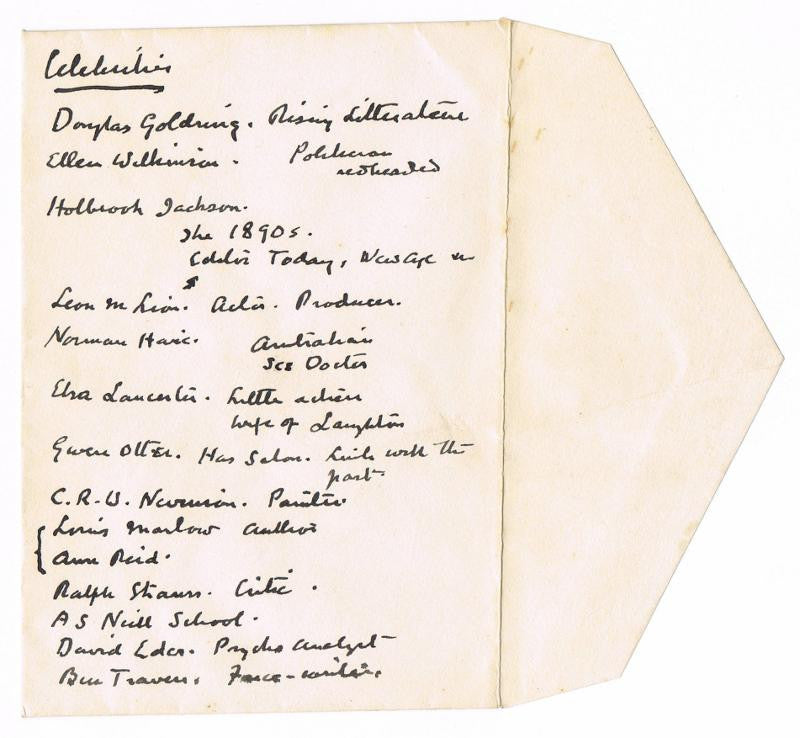 Celebrities
Douglas Goldring. Rising Litterateur
Ellen Wilkinson. Politician
redheaded
Holbrook Jackson.
The 1890s.
Editor Today, New Age
Leon M Lion. Actor. Producer.
Norman Haire. Australian
Sex Doctor
Elsa Lancester. Little actress
wife of Laughton
Gwen Otter. Has Salon. Link with the
past.
C.R.W. Nevinson. Painter
Louis Marlow author
Ann Reid.
Ralph Straus. Critic.
A S Neill School.
David Eder. Psycho analyst
Ben Travers. Farce-writer.